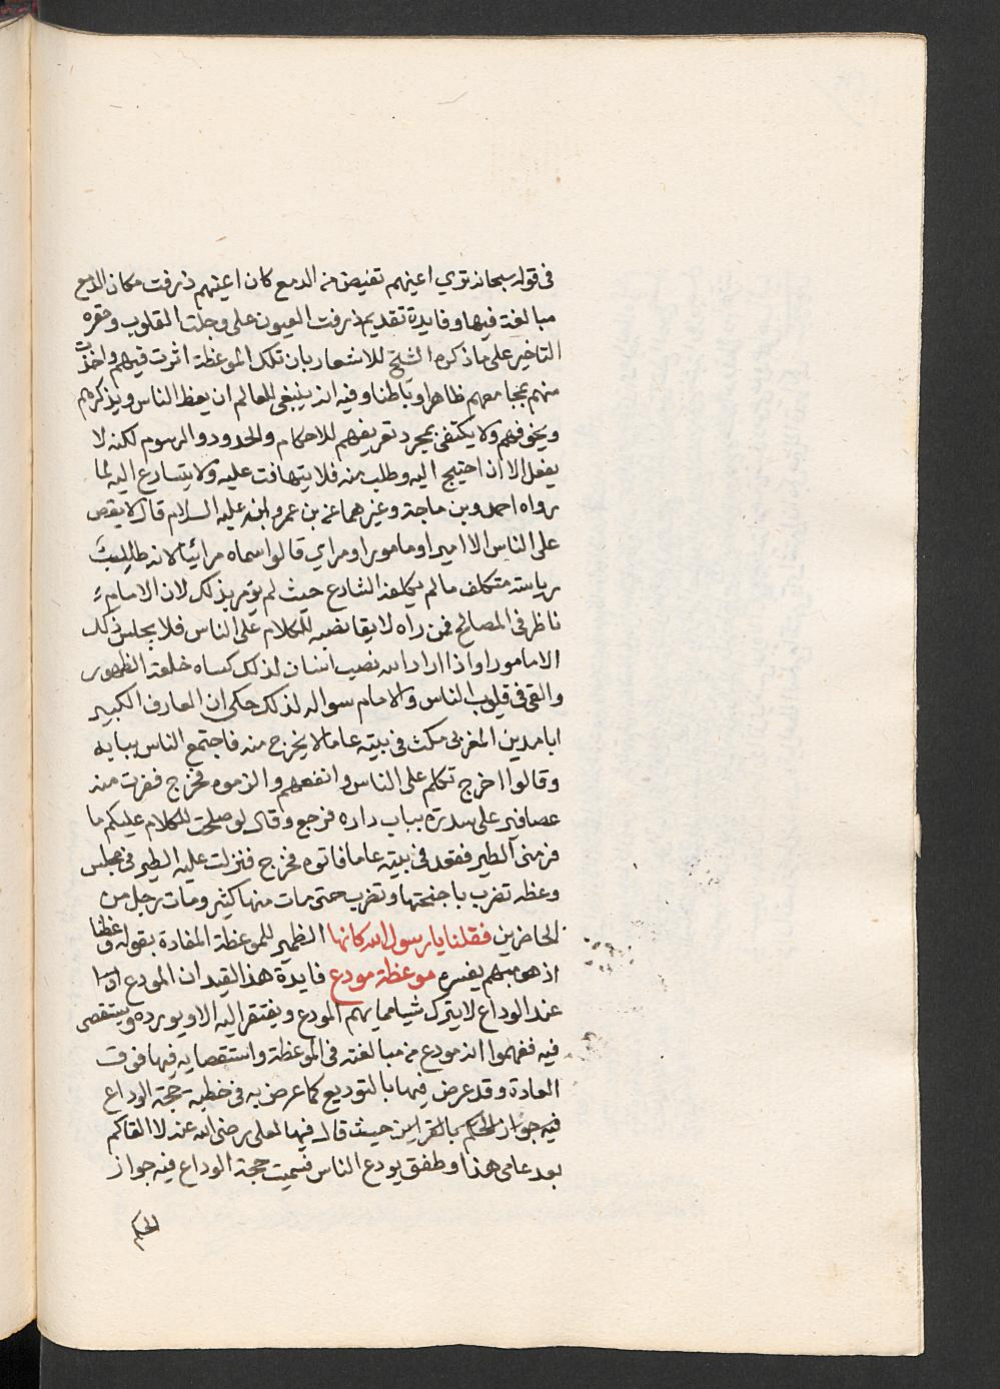 في قوله سبحانه تري اعينهم تفيض من الدمع كان اعينهم ذرفت مكان الدمع
مبالغة فيها وفايدة تقديم ذرفت العيون على وجلت القلوب وحقره
التاخير على ما ذكره الشيخ للاشعار بان تلك الموعظة اثرت فيهم واخذت
منهم بمجامعهم ظاهرا وباطنا وفيه انه ينبغي للعالم ان يعظ الناس ويذكرهم
ويخوفهم ولا يكتفي بمجرد تعريفهم للاحكام والحدود والرسوم لكنه لا
يفعل الا اذا احتيج اليه وطلب منه فلا يتهافت عليه ولا يتسارع اليه لما
رواه احمد وبن ماجة وغيرهما عن بن عمرو انه عليه السلام قال لا يقص
على الناس الا امير او مامور او مراي قالوا سماه مرائيا لانه طالب
رياسة متكلف ما لم يكلفه الشارع حيث لم يؤمر بذلك لان الامام
ناظر في المصالح فمن راه لايقا نصبه للكلام على الناس فلا يجلس ذلك
الا مامورا واذا اراد الله نصب انسان لذلك كساه خلعة الظهور
والقى في قلوب الناس والامام سواله لذلك حكي ان العارف الكبير
ابا مدين المغربي مكث في بيته عاما لا يخرج منه فاجتمع الناس ببابه
وقالوا اخرج تكلم على الناس وانفعهم والزموه فخرج ففرت منه
عصافير على سدرة بباب داره فرجع وقال لو صلحت للكلام عليكم ما
فر مني الطير فقعد في بيته عاما فاتوه فخرج فنزلت عليه الطير في مجلس
وعظه تضرب باجنحتها وتضرب حتى مات منها كثير ومات رجل من
الحاضرين فقلنا يا رسول الله كانها الظمير للموعظة المفادة بقوله وعظنا
اذ هو مبهم يفسره موعظة مودع فايدة هذا القيد ان المودع
عند الوداع لا يترك شيا مما يهم المودع ويفتقر اليه الا ويورده ويستقصي
فيه ففهموا انه مودع من مبالغته في الموعظة واستقصايه فيها فوق
العادة وقد عرض فيها بالتوديع كما عرض به في خطبة حجة الوداع
فيه جواز الحكم بالقراين حيث قال فيها لعلي رضي الله عنه لا القاكم
بعد عامي هذا وطفق يودع الناس فسميت حجة الوداع فيه جواز
الحكم